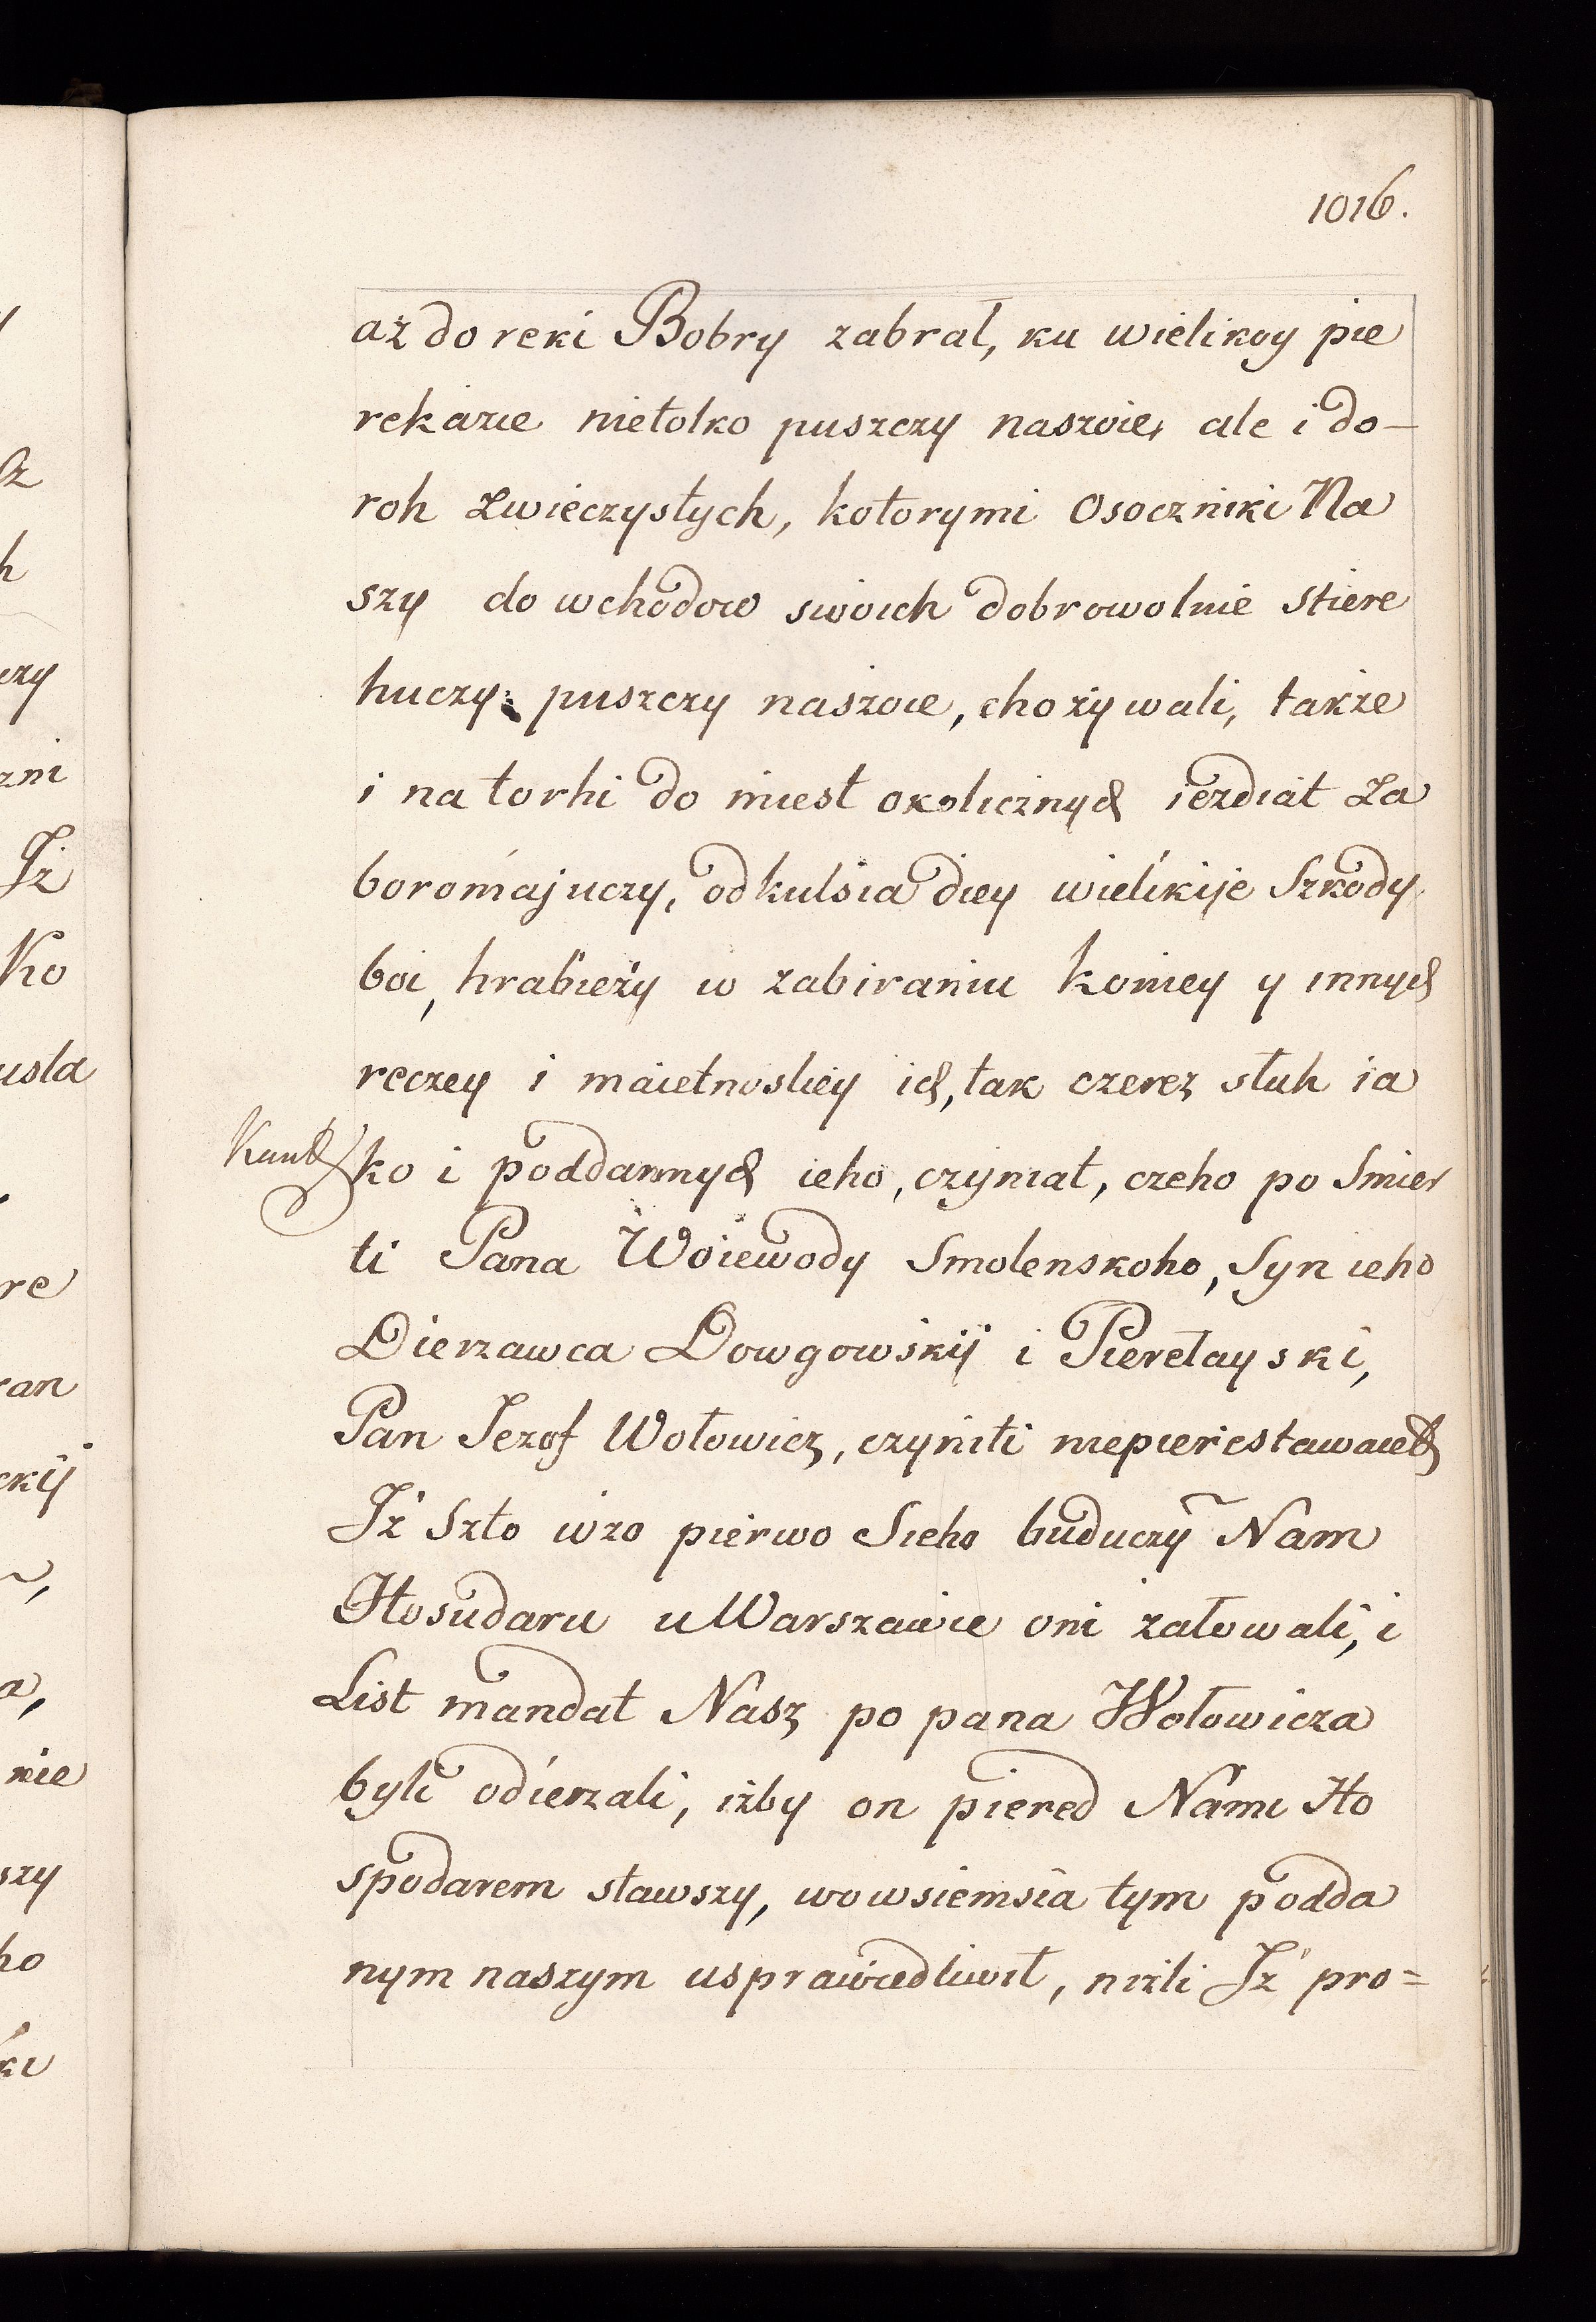 1016.
aż do reki Bobry zabrał, ku wielikoy pie
rekazie nietolko puszczy naszoie, ale i do-
roh zwieczystych, kotorymi Osoczniki Na
szy do wchodow swoich dobrowolnie stiere
huczy puszczy naszoie, chożywali, także
i na torhi do miest okolicznych iezdiat za
boromiajuczy, odkulsia diey wielikije Szkody
boi, hrabieży w zabiraniu koniey y innych
reczey i maietnostiey ich, tak czerez słuh ia
ko i poddannych ieho, czyniat, czeho po Smier
ti Pana Woiewody Smolenskoho, Syn ieho
Dierzawca Dowgowskij i Pierełayski,
Pan Jezof Wołowicz, czyniti niepierestawaiet
Iż Szto wżo pierwo Sieho buduczy Nam
Hosudaru u Warszawie oni żałowali, i
List mandat Nasz po pana Wołowicza
byli odierzali, iżby on piered Nami Ho
spodarem stawszy, wowsiemsia tym podda
nym naszym usprawiedliwił, niżli Iż pro=
zni
Iż
Ko
usla
re
nie
szy
ho